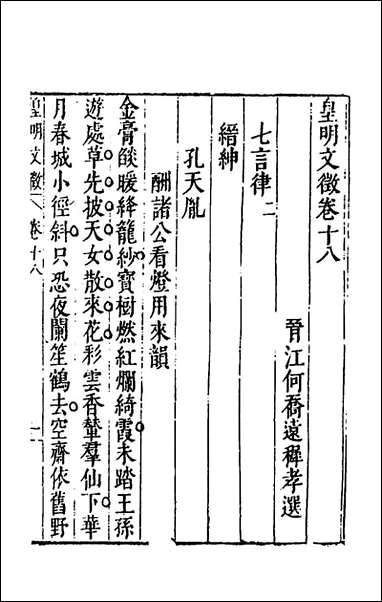 皇明文徵卷十八
晉江何喬遠穉孝選
七言律二
縉紳
孔天胤
酬諸公看燈用來韻
金膏燄暖絳籠紗寶樹燃紅爛綺霞未踏王孫
遊處草先披天女散來花彩雲香輦羣仙下華
月春城小徑斜只恐夜闌笙鶴去空齋依舊野
皇明文徵
卷十八
一